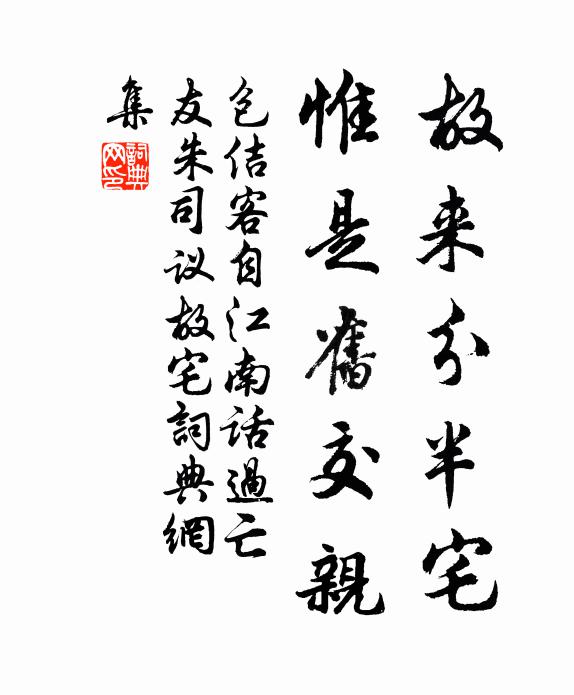 故来分半宅
惟是舊交親
包佶客自江南話過亡
友朱司议故宅詞典網
集
詞典网印